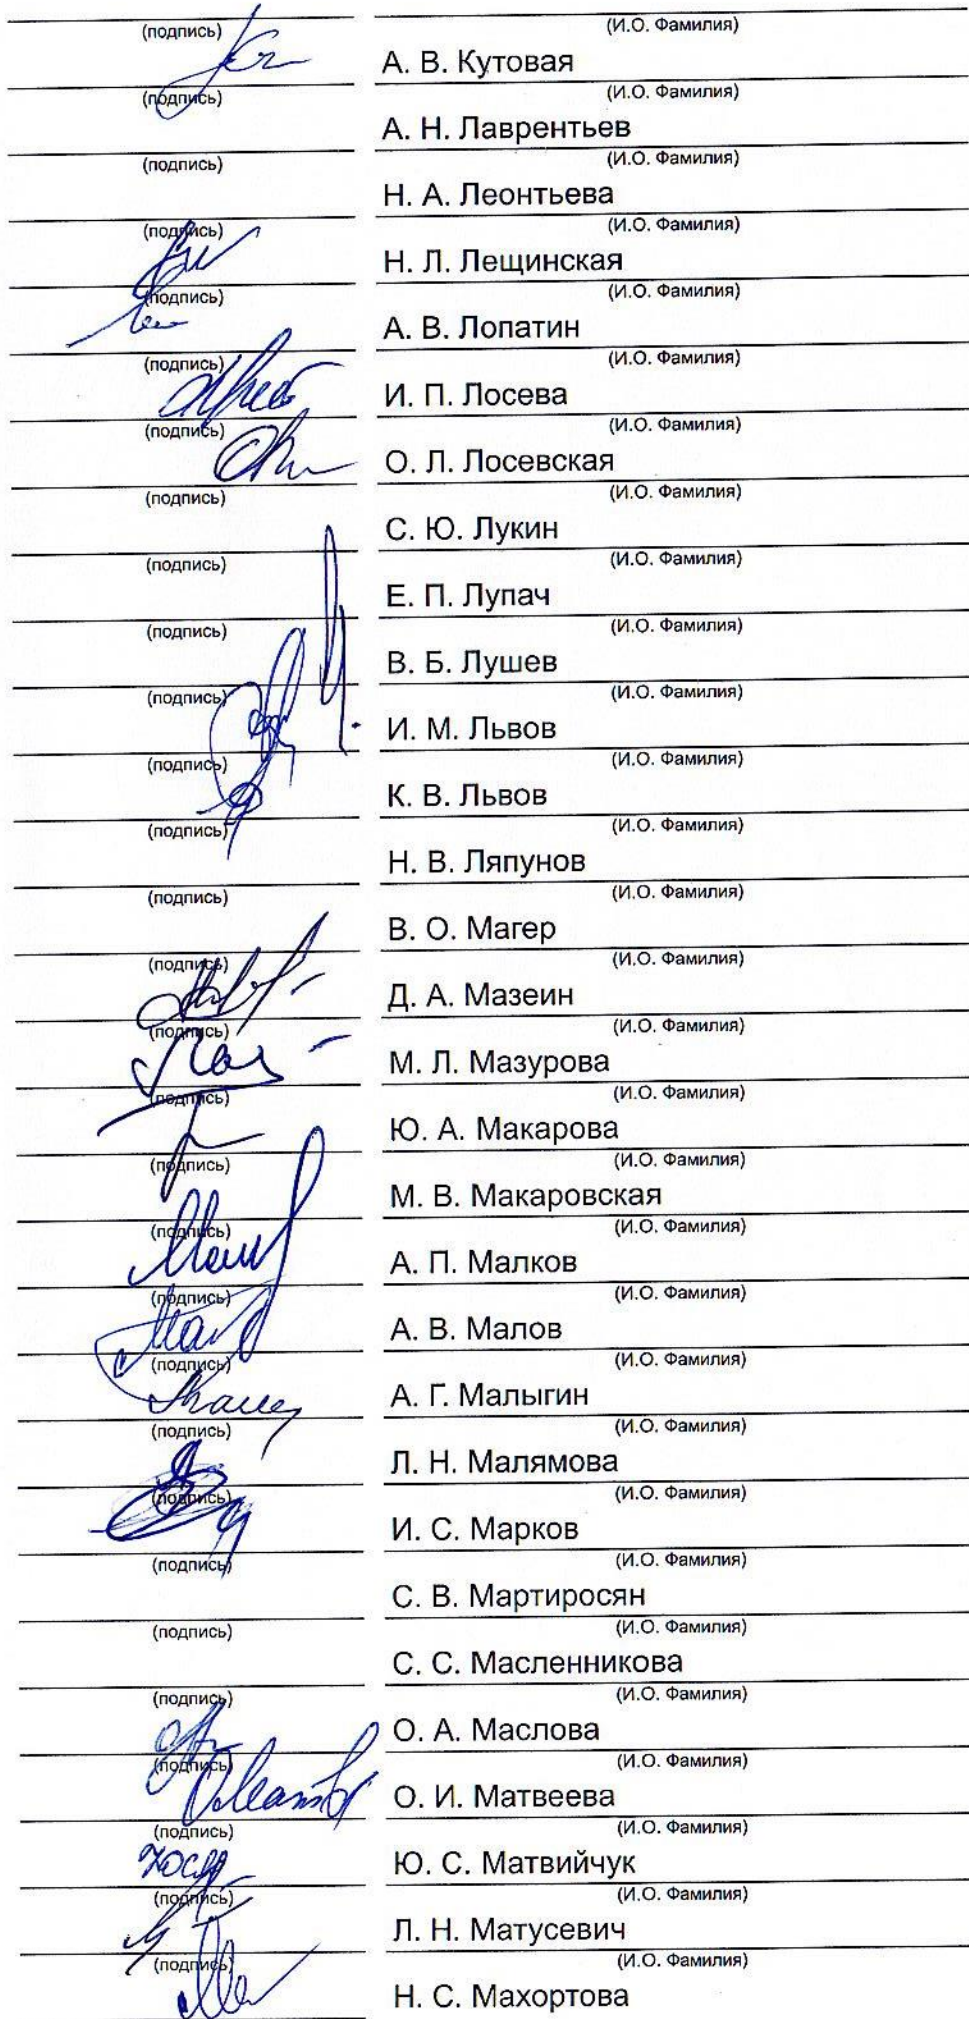 (подпись) (И.О. Фамилия)
А. В. Кутовая
(подпись) (И.О. Фамилия)
А. Н. Лаврентьев
(подпись) (И.О. Фамилия)
Н. А. Леонтьева
(подпись) (И.О. Фамилия)
Н. Л. Лещинская
(подпись) (И.О. Фамилия)
А. В. Лопатин
(подпись) (И.О. Фамилия)
И. П. Лосева
(подпись) (И.О. Фамилия)
О. Л. Лосевская
(подпись) (И.О. Фамилия)
С. Ю. Лукин
(подпись) (И.О. Фамилия)
Е. П. Лупач
(подпись) (И.О. Фамилия)
В. Б. Лушев
(подпись) (И.О. Фамилия)
И. М. Львов
(подпись) (И.О. Фамилия)
К. В. Львов
(подпись) (И.О. Фамилия)
Н. В. Ляпунов
(подпись) (И.О. Фамилия)
В. О. Магер
(подпись) (И.О. Фамилия)
Д. А. Мазеин
(подпись) (И.О. Фамилия)
М. Л. Мазурова
(подпись) (И.О. Фамилия)
Ю. А. Макарова
(подпись) (И.О. Фамилия)
М. В. Макаровская
(подпись) (И.О. Фамилия)
А. П. Малков
(подпись) (И.О. Фамилия)
А. В. Малов
(подпись) (И.О. Фамилия)
А. Г. Малыгин
(подпись) (И.О. Фамилия)
Л. Н. Малямова
(подпись) (И.О. Фамилия)
И. С. Марков
(подпись) (И.О. Фамилия)
С. В. Мартиросян
(подпись) (И.О. Фамилия)
С. С. Масленникова
(подпись) (И.О. Фамилия)
О. А. Маслова
(подпись) (И.О. Фамилия)
О. И. Матвеева
(подпись) (И.О. Фамилия)
Ю. С. Матвийчук
(подпись) (И.О. Фамилия)
Л. Н. Матусевич
(подпись) (И.О. Фамилия)
Н. С. Махортова